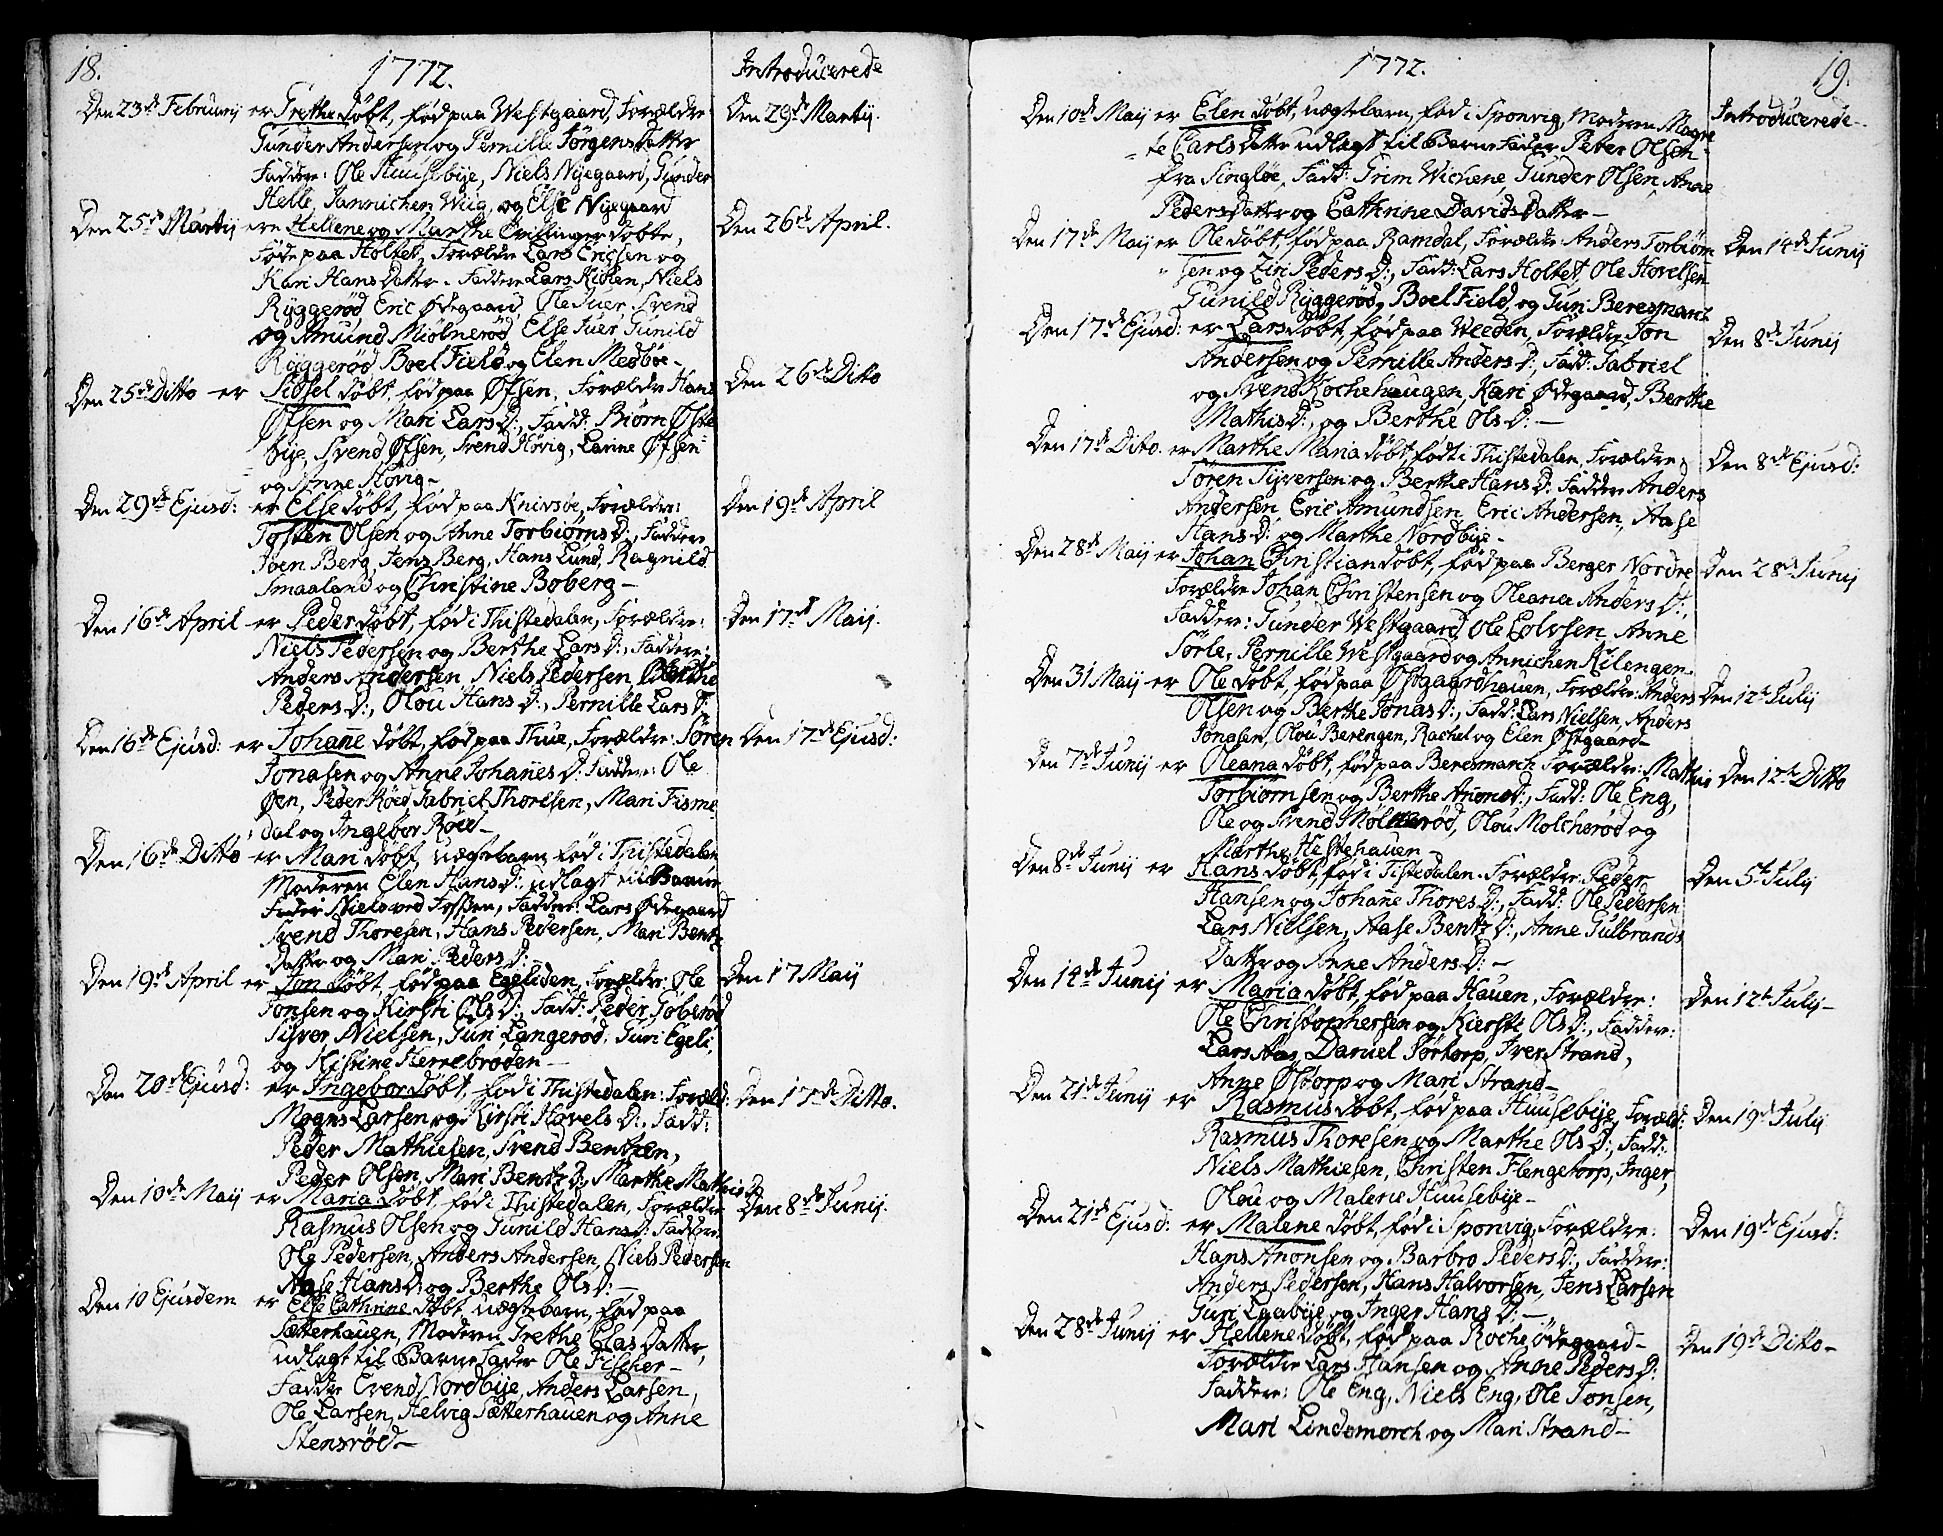 18.
1772.
Introducerede
Den 23de Februarij er Grethe døbt, fød paa Westgaard, Forældre
Den 29de Martij.
Gunder Andersen og Pernille Jørgens Datter
Faddere: Ole Huusebije, Niels Nyegaard, Gunder
Helle, Jannichen Wiig, og Else Nyegaard
Den 25de Martij ere Hellene og Marthe Tvillinger døbte,
Den 26de April.
Føde paa Holtet, Forældre Lars Ericsen og
Kari Hans Datter. Faddere Lars Kiølen, Niels
Ryggerød, Eric Ødegaard, Ole Juer, Svend
og Amund Miølnerød, Else Juer, Gunild
Ryggerød Boel Field og Elen Medbøe.
Den 25de Ditto er Sidsel døbt, fød paa Øfsen, Forældre Hans
Den 26de Ditto
Øfsen og Mari Lars D:, Fadd: Biørn Øste
bije, Svend Øfsen, Svend Høvig, Larine Øfsen
og Anne Høvig-
Den 29de Ejusd: er Else døbt, fød paa Knivsøe, Forældre:
Den 19de April
Tosten Olsen og Anne Torbiørns D:, Faddere
Joen Berg, Jens Berg, Hans Lund, Ragnild
Smaaland og Christine Boberg-
Den 16de April er Peder døbt, fød i Thistedalen, Forældre:
Den 17de Maij.
Niels Pedersen og Berthe Lars D:, Faddere:
Anders Andersen, Niels Pedersen, Berthe
Peders D:, Olou Hans D:, Pernille Lars D:
Den 16de Ejusd: er Johanne døbt, fød paa Thue, Forældre: Søren
Den 17de Ejusd:
Jonasen og Anne Johannes D: Faddere: Ole
Øen, Peder Røed, Gabriel Thoresen, Mari Tisme
dal og Ingebor Røed-
Den 16de Ditto er Mari døbt, uægtebarn fød i Thistedalen
Moderen Elen Hans D:, udlagt til Barne
Fader Niels ved Fossen, Faddere: Lars Ødegaard
Svend Thoresen, Hans Pedersen, Mari Bentz
Datter og Mari Peders D:
Den 19de April er Jon døbt, fød paa Egeliden, Forældre: Ole
Den 17 Maij
Jonsen og Kirsti Ols D:, Fadd: Peder Goberød
Sijver Nielsen, Guri Langerød, Guri Egeli,
og Kistine Herrebrøden-
Den 20de Ejusd: er Ingebor døbt, fød i Thistedalen: Foræld:
Den 17de Ditto.
Mogns Larsen og Kirsti Havels D:, Fadd:
Peder Mathiesen, Svend Bentzen,
Peder Olsen, Mari Bentz D:, Marthe Mathis D:
Den 10de Maij er Maria døbt, fød i Thistedalen, Forældre
Den 8de Junij.
Rasmus Olsen og Gunild Hans D: Faddere:
Ole Pedersen, Anders Andersen, Niels Pedersen
Aase Hans D: og Berthe Ols D:-
Den 10 Ejusdem er Else Cathrine døbt, uægtebarn, fød paa
Sætterhauen, Moderen Grethe Clas Datter,
udlagt til Barne Fader Ole Fischer-
Faddere Evend Nordbije, Anders Larsen,
Ole Larsen, Helvig Sætterhauen og Anne
Stensrød-
1772.
19.
Introducerede-
Den 10de Maij er Elen døbt, uægtebarn, fød i Sponvig, Moderen Magre
te Carls Datter udlagt til Barne Fader Peter Olsen
fra Singløe, Fadd: Grim Wichene Gunder Olsen, Anne
Peders Datter og Cathrine Davids Datter-
Den 17de Maij er Ole døbt, fød paa Ramdal, Forældre Anders Torbiørn
Den 14de Junij
sen og Ziri Peders D:, Fadd: Lars Holtet Ole Hovelsen
Gunild Ryggerød, Boel Field og Guri Beresmarch
Den 17de Ejusd: er Lars døbt, fød paa Weeden, Forældre Jon
Den 8de Junij
Andersen og Pernille Anders D:, Fadd: Gabriel
og Svend Kochehaugen, Kari Ødegaard, Berthe
Mathis D:, og Berthe Ols D:-
Den 17de Dito. er Marthe Maria døbt, født i Thistedalen, Forældre
Den 8de Ejusd:
Søren Sijversen og Berthe Hans D: Faddere Anders
Andersen, Eric Amundsen, Eric Andersen, Aase
Hans D: og Marthe Nordbije-
Den 28de Maij er Johan Christian døbt, fød paa Berger Nordre
Den 28de Junij
Forældre Johan Christensen og Oleana Anders D:
Faddere: Gunder Westgaard Ole Eolvsen, Anne
Sørle, Pernille Westgaard og Annichen Kilengen
Den 31 Maij er Ole døbt, fød paa Østgaardhauen, Forældre: Anders
Den 12te Julij
Olsen og Berthe Jonas D:, Fadd: Lars Nielsen, Anders
Jonasen, Olou Berengen, Rachel og Elen Østgaard-
Den 7de Junij er Oleana døbt, fød paa Beresmarch Forældre: Mathis
Den 12te Ditto
Torbiørnsen og Berthe Anons D:, Fadd: Ole Eng,
Ole og Svend Molcherød, Olou Molcherød og
Marthe Hestehauen-
Den 8de Junij er Hans døbt, fød i Tistedalen. Forældre Peder
Den 5te Julij
Hansen og Johanne Thores D:, Fadd: Ole Pedersen
Lars Nielsen, Aase Bentz D:, Anne Gulbrands
Datter og Anne Anders D:-
Den 14de Junij er Maria døbt, fød paa Hauen, Forældre:
Den 12te Julij-
Ole Christophersen og Kiersti Ols D:, Faddere:
Lars Aas, Daniel Sørtorp, Iver Strand,
Anne Østorp og Mari Strand-
Den 21de Junij er Rasmus døbt, fød paa Huusebije, Foræld:
Den 19de Julij
Rasmus Thoresen og Marthe Ols D:, Fadd:
Niels Mathiesen, Christen Flengetorp, Inger,
Olou og Malene Huusebije-
Den 21de Ejusd: er Malene døbt, fød i Sponvig, Forældre:
Den 19de Ejusd:
Hans Anonsen og Barbro Peders D:, Faddere:
Anders Pedersen, Hans Halvorsen, Jens Larsen
Guri Laabije og Inger Hans D:-
Den 28de Junij er Hellene døbt, fød paa Rocheødegaard-
Den 19de Ditto-
Forældre Lars Hansen og Anne Peders D:
Faddere: Ole Eng, Niels Eng, Ole Jonsen,
Mari Lindemorch og Mari Strand-